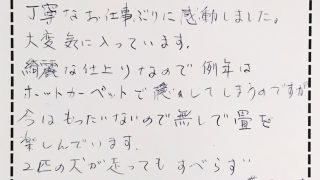 丁寧なお仕事ぶりに感動しました。
大変気に入っています。
綺麗な仕上りなので例年は
ホットカーペットで してしまうのですが
今はもったいないので無しで畳を
楽しんでいます。
2匹の犬が走ってもすべらず